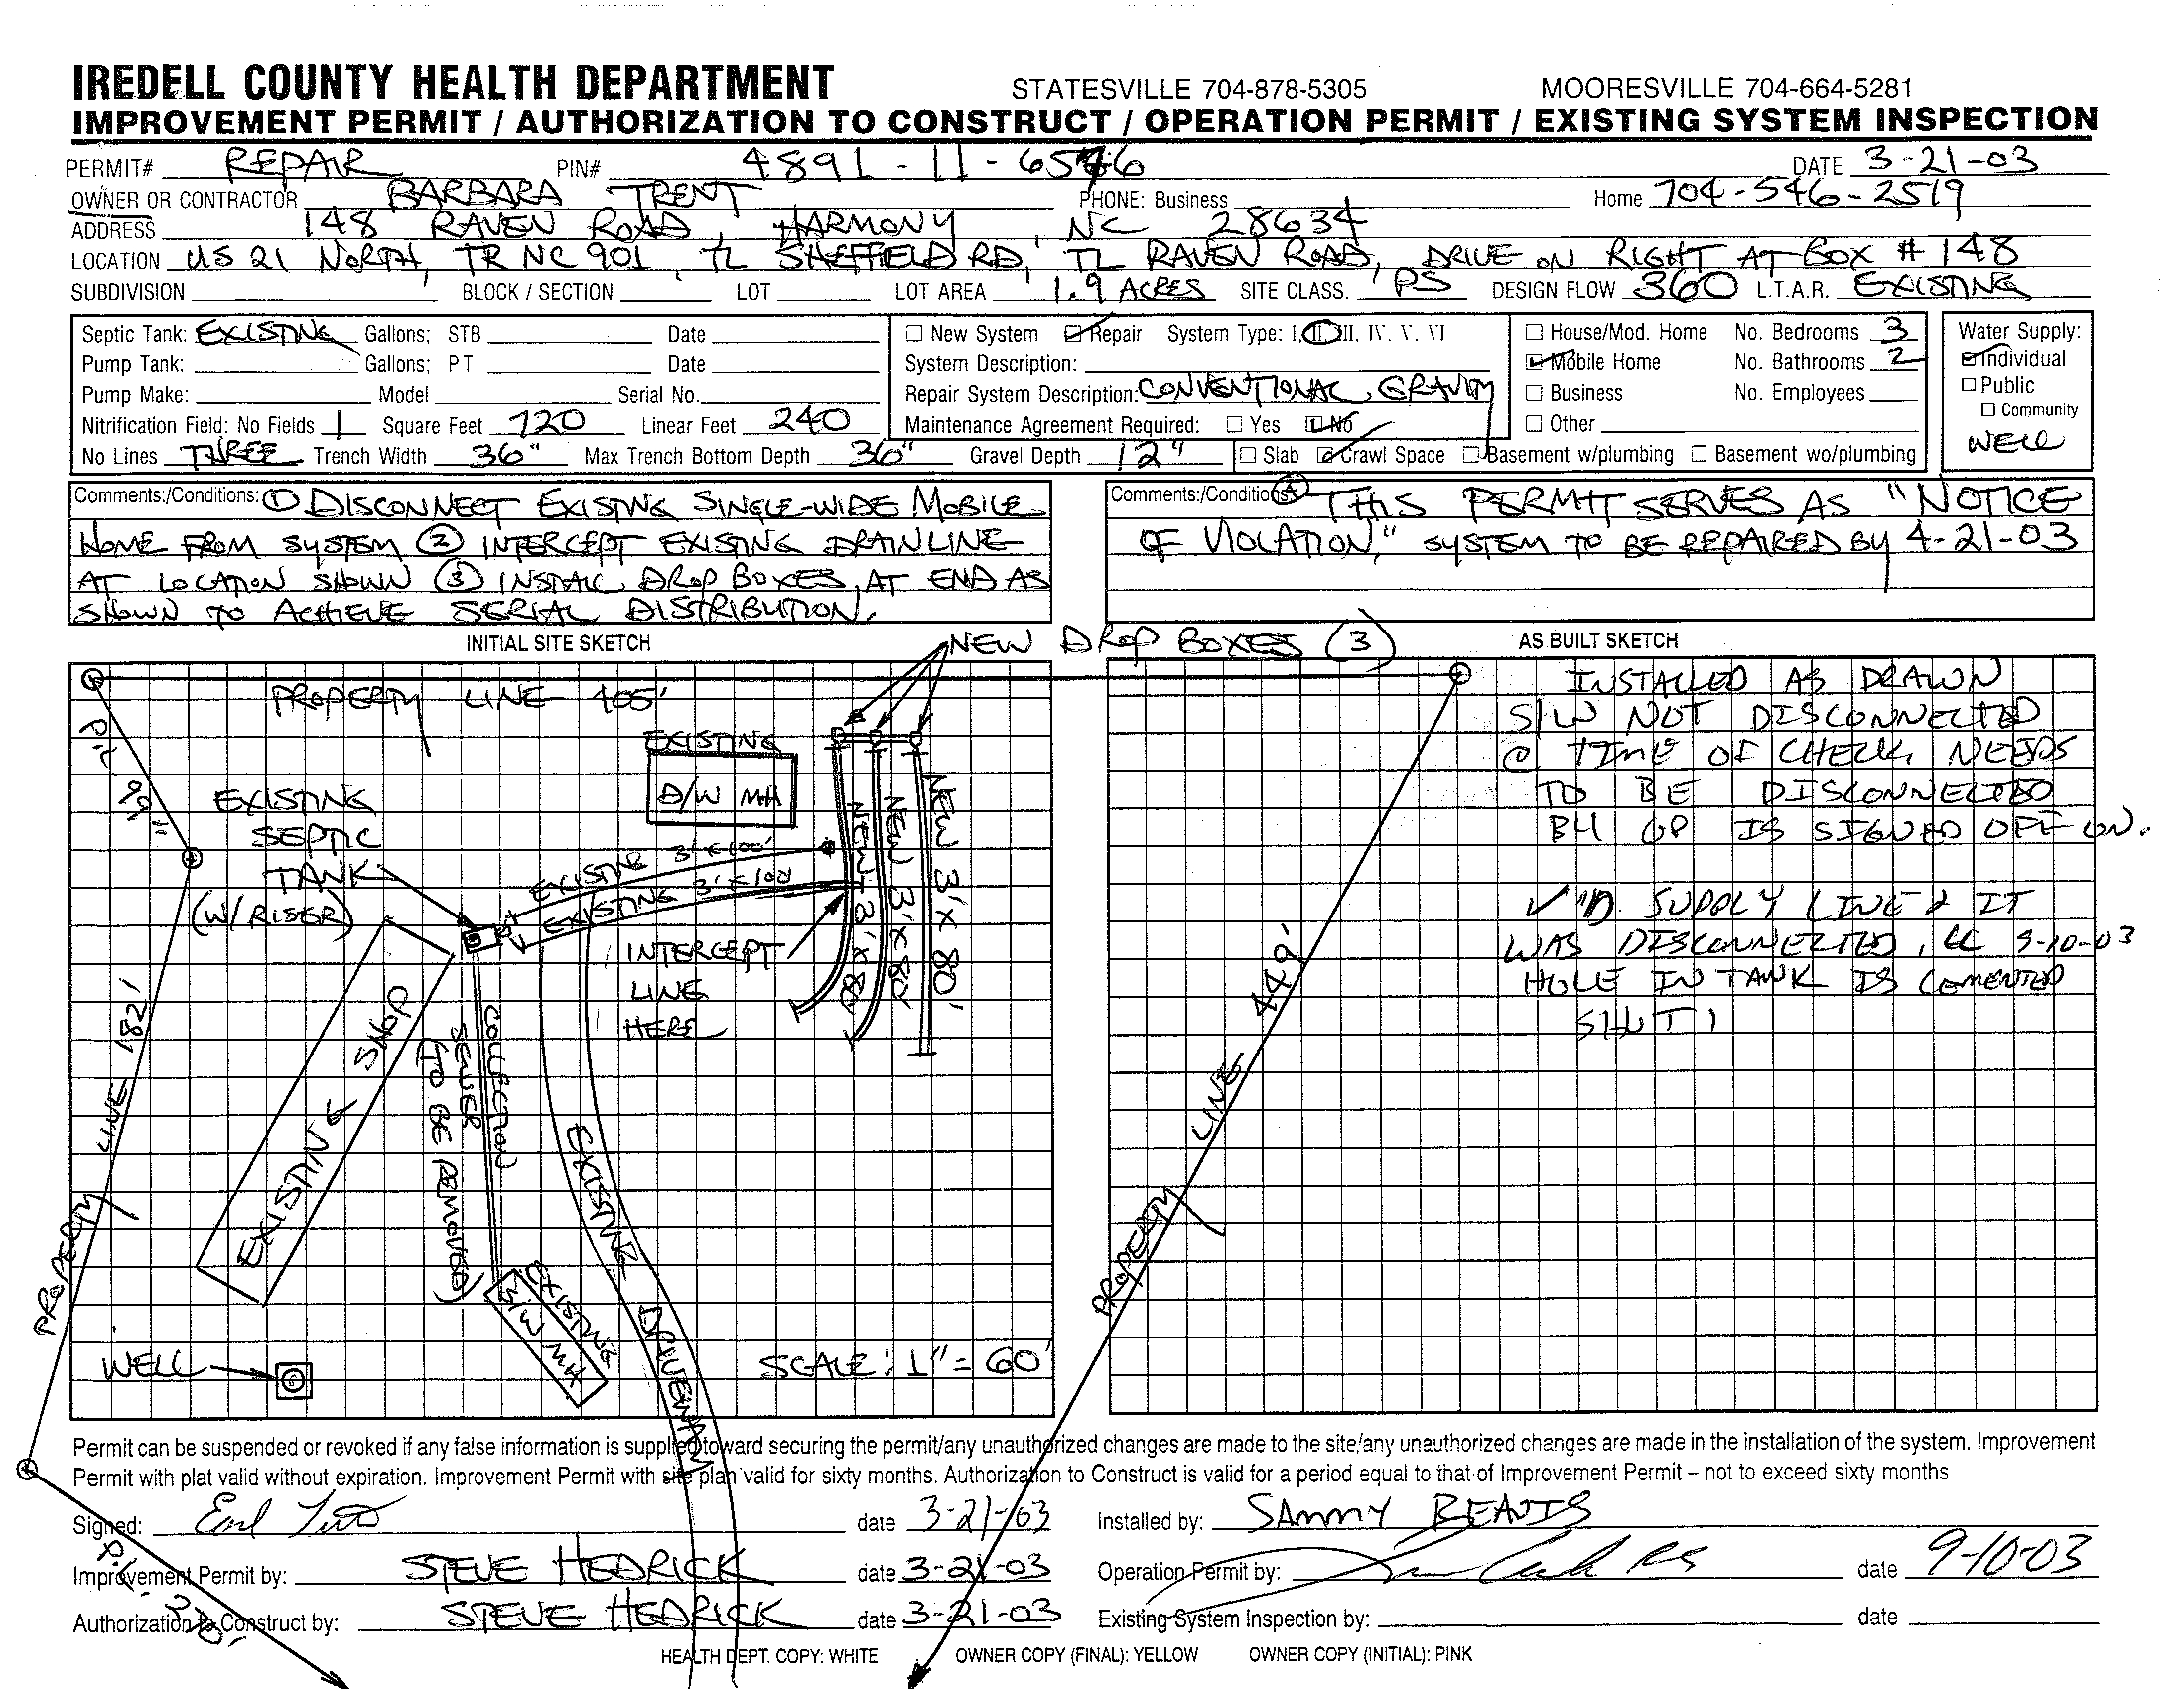 IREDELL COUNTY HEALTH DEPARTMENT STATESVILLE 704-878-5305 MOORESVILLE 704-664-5281
IMPROVEMENT PERMIT / AUTHORIZATION TO CONSTRUCT / OPERATION PERMIT / EXISTING SYSTEM INSPECTION
PERMIT# REPAIR PIN# 4891-11- DATE 3-21-03
OWNER OR CONTRACTOR BARBARA TRENT PHONE: Business Home 704-546-2519
ADDRESS 148 RAVEN ROAD, HARMONY, NC 28634
LOCATION US 21 NORTH, TR NC 901, TL SHEFFIELD RD, TL RAVEN ROAD, DRIVE ON RIGHT AT BOX # 148
SUBDIVISION BLOCK / SECTION LOT LOT AREA 1.9 ACRES SITE CLASS. PS DESIGN FLOW 360 L.T.A.R. EXISTING
Septic Tank: EXISTING Gallons; STB Date
Pump Tank: Gallons; PT Date
Pump Make: Model Serial No.
Nitrification Field: No Fields 1 Square Feet 720 Linear Feet 240
No Lines THREE Trench Width 36" Max Trench Bottom Depth 36" Gravel Depth 12"
New System Repair System Type: I. II. III. IV. V. VI
System Description:
Repair System Description: CONVENTIONAL, GRAVITY
Maintenance Agreement Required: Yes No
Slab Crawl Space Basement w/plumbing Basement wo/plumbing
House/Mod. Home No. Bedrooms 3
Mobile Home No. Bathrooms 2
Business No. Employees
Other
Water Supply:
Individual
Public
Community
WELL
Comments:/Conditions: ① DISCONNECT EXISTING SINGLE-WIDE MOBILE
HOME FROM SYSTEM ② INTERCEPT EXISTING DRAINLINE
AT LOCATION SHOWN ③ INSTALL DROP BOXES AT END AS
SHOWN TO ACHIEVE SERIAL DISTRIBUTION.
Comments:/Conditions: ④ THIS PERMIT SERVES AS "NOTICE
OF VIOLATION," SYSTEM TO BE REPAIRED BY 4-21-03
INITIAL SITE SKETCH
NEW DROP BOXES (3)
AS BUILT SKETCH
PROPERTY LINE 405'
EXISTING
D/W MH
EXISTING
SEPTIC
TANK
(W/RISER)
EXISTING 3' X 100'
EXISTING 3' X 100'
NEW 3' X 80'
NEW 3' X 80'
NEW 3' X 80'
INTERCEPT
LINE
HERE
EXISTING SHOP
COLLECTION
SEWER
(TO BE REMOVED)
EXISTING
S/W MH
EXISTING DRIVEWAY
PROPERTY LINE 182'
WELL
SCALE: 1" = 60'
PROPERTY LINE 449'
INSTALLED AS DRAWN
S/W NOT DISCONNECTED
@ TIME OF CHECK, NEEDS
TO BE DISCONNECTED
B4 OP IS SIGNED OFF ON.
✓'D SUPPLY LINE & IT
WAS DISCONNECTED, LC 9-10-03
HOLE IN TANK IS CEMENTED
SHUT!
Permit can be suspended or revoked if any false information is supplied toward securing the permit/any unauthorized changes are made to the site/any unauthorized changes are made in the installation of the system. Improvement
Permit with plat valid without expiration. Improvement Permit with site plan valid for sixty months. Authorization to Construct is valid for a period equal to that of Improvement Permit – not to exceed sixty months.
Signed: date 3-21-03 Installed by: SAMMY BEAVIS
Improvement Permit by: STEVE HEDRICK date 3-21-03 Operation Permit by: date 9-10-03
Authorization to Construct by: STEVE HEDRICK date 3-21-03 Existing System Inspection by: date
HEALTH DEPT. COPY: WHITE OWNER COPY (FINAL): YELLOW OWNER COPY (INITIAL): PINK